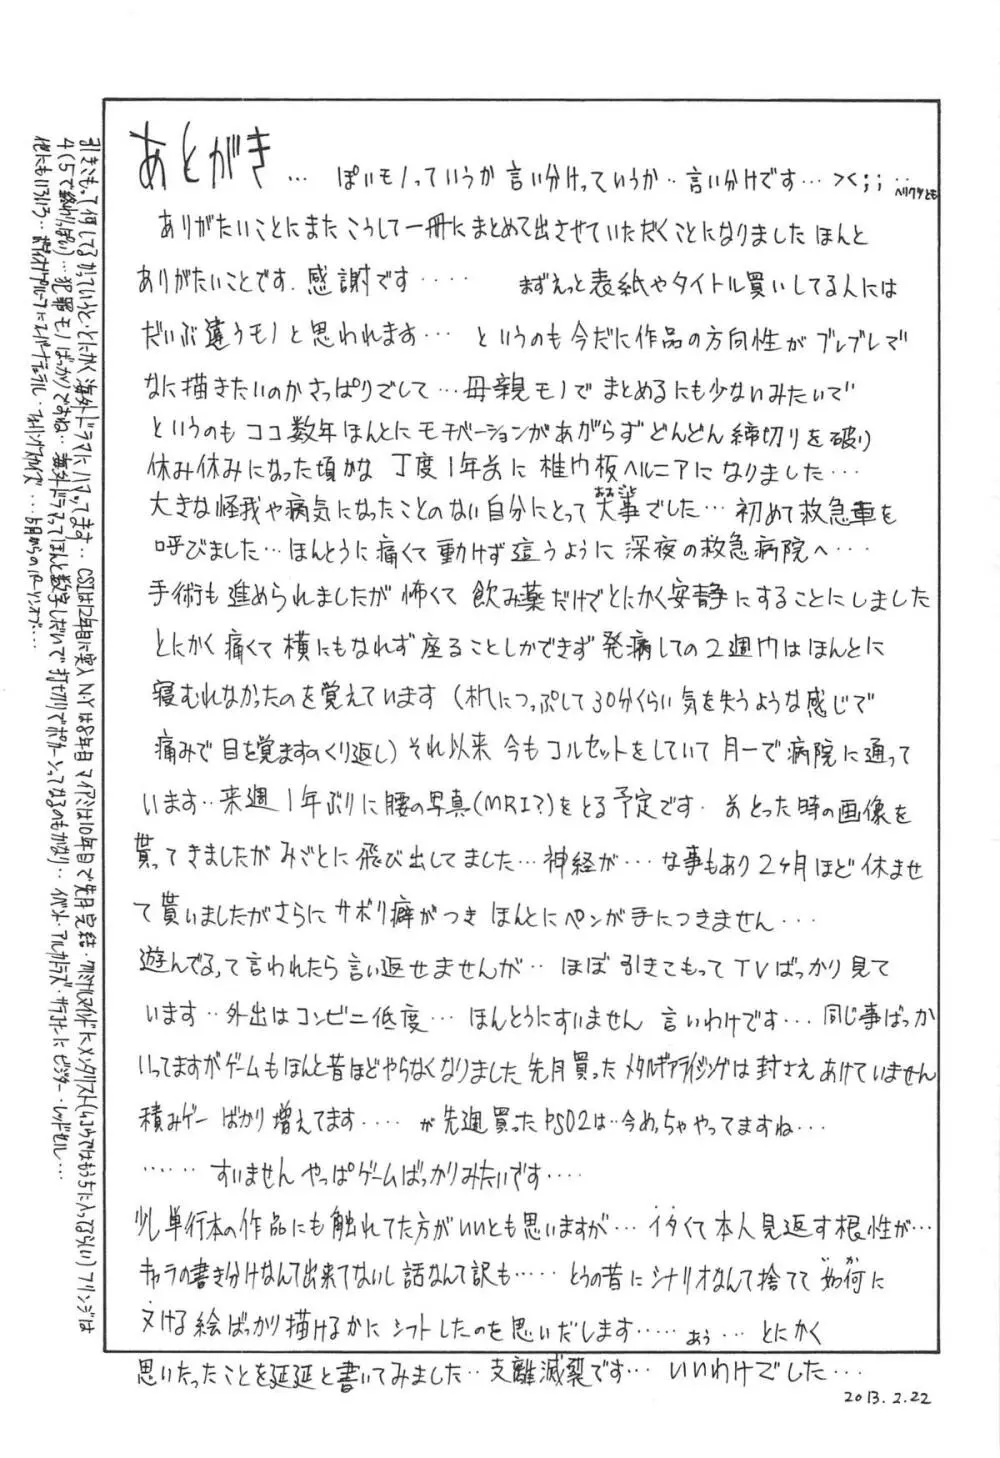 あとがき … ぽいモノっていうか 言い分けっていうか‥言い分けです… ><;;
ヘリクツとも
ありがたいことにまた こうして一冊にまとめて出させていただくことになりました ほんと
ありがたいことです. 感謝です ‥‥ まずえっと表紙やタイトル買いしてる人には
だいぶ違うモノと思われます… というのも今だに作品の方向性が ブレブレで
なに描きたいのかさっぱりでして…母親モノで まとめるにも少ないみたいで
というのも ココ数年ほんとに モチベーションがあがらず どんどん 締切りを破り
休み休みになった頃かな 丁度1年前に 椎間板ヘルニアになりました…
大きな怪我や病気になったことのない自分にとって 大事でした… 初めて救急車を
呼びました…ほんとうに痛くて 動けず 這うように 深夜の救急病院へ…
手術も 進められましたが 怖くて 飲み薬だけでとにかく安静にすることにしました
とにかく 痛くて 横にもなれず 座ることしかできず 発病しての2週間はほんとに
寝むれなかったのを覚えています (机につっぷして30分くらい 気を失うような感じで
痛みで 目を覚ますのくり返し) それ以来 今も コルセットをしていて 月一で 病院に通って
います‥来週 1年ぶりに 腰の写真(MRI?)をとる予定です. 前とった時の画像を
貰ってきましたが みごとに 飛び出してました…神経が… な事もあり2ヶ月ほど 休ませ
て貰いましたがさらに サボリ癖がつき ほんとにペンが手につきません…
遊んでるって言われたら 言い返せませんが‥ ほぼ 引きこもって TVばっかり見て
います‥外出はコンビニ低度… ほんとうにすいません 言いわけです… 同じ事ばっか
いってますがゲームもほんと昔ほどやらなくなりました 先月買った メタルギアライジングは 封さえあけていません
積みゲーばかり 増えてます‥‥ が 先週買ったPSO2は‥今めっちゃやってますね…
…… すいません やっぱゲームばっかりみたいです‥‥
少し単行本の作品にも 触れてた方がいいとも思いますが… イタくて 本人見返す 根性が…
キャラの書き分けなんて出来てないし 話なんて訳も…‥ とうの昔に シナリオなんて捨てて 如何に
ヌける 絵ばっかり描けるかに シフトしたのを 思いだします…‥ あぅ… とにかく
思いたったことを延延と書いてみました… 支離滅裂です… いいわけでした…
2013.2.22
引きこもって何してるかっていうと‥とにかく 海外ドラマにハマってます‥ CSIは12年目に突入 N.Yは8年目 マイアミは10年目で先月完結・クリミナルマインドに メンタリスト
4(5で終わりっぽい)… 犯罪モノばっかりですね‥ 海外ドラマってほんと数字しだいで 打ち切りでポカーンってなるのもかなり‥ イベント・アルカトラズ・サラコナーにビジター・レッドセル…
他にもいろいろ‥